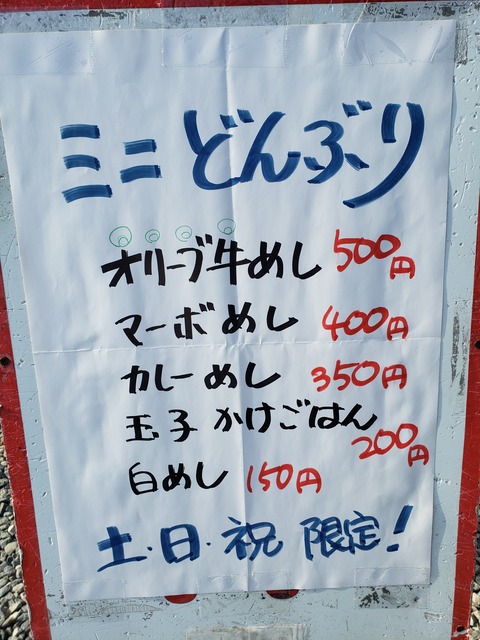 ミニどんぶり
オリーブ牛めし 500円
マーボめし 400円
カレーめし 350円
玉子かけごはん 200円
白めし 150円
土・日・祝 限定!